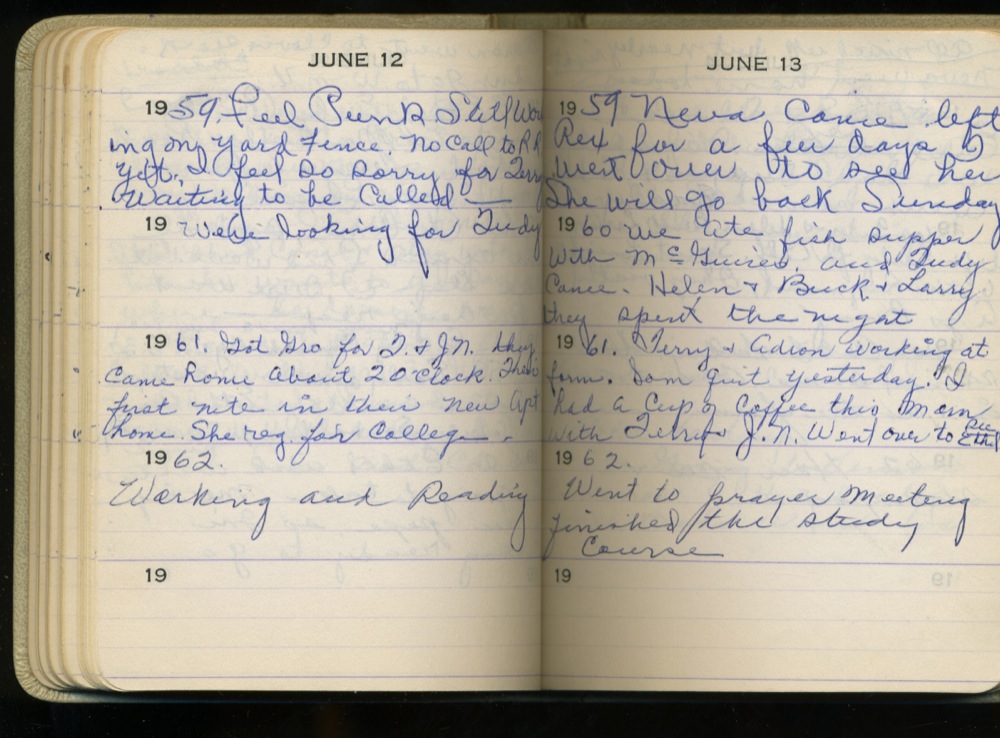 JUNE 12
1959. Feel Punk Still Work
ing on Yard Fence. No Call to RR
yet. I feel so sorry for Terry
Waiting to be Called —
19 We're looking for Judy
1961. Got Gro for T. & J.N. they
Came home About 2 O'Clock. Their
first nite in their new Apt
home. She reg. for College.
1962.
Working and Reading
19
JUNE 13
1959 Neva Came left
Rex for a few days I
went over to see her
She will go back Sunday
1960 we ate fish supper
with McGuires. and Judy
Came. Helen & Buck & Larry
they spent the night
1961. Terry & Adron Working at
farm. Sam quit yesterday. I
had a Cup of Coffee this Morn
with Terry & J.N. Went over to
1962.
Went to prayer meeting
finished the study
Course
19